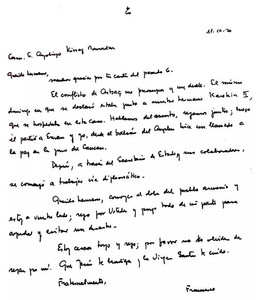 11.10.20
Querido hermano,
muchas gracias por tu carta del pasado 6.
El conflicto de Artsaj me preocupa y me duele. El mismo
domingo en que se declaró estaba junto a nuestro hermano Karekin II,
que se hospedaba en esta casa. Hablamos del asunto, rezamos juntos; luego
él partió a y yo, desde el balcón del Angelus hice un llamado a
la paz en la zona del Caucaso.
Después, a través del Secretario de Estado y sus colaboradores,
se comenzó a trabajar vía diplomática.
Querido hermano, conozco el dolor del pueblo armenio y
estoy a vuestro lado; rezo por Ustedes y pongo todo de mi parte para
ayudar y evitar un
Estoy cerca tuyo y rezo; por favor no te olvides de
rezar por mí. Que Jesús te bendiga y la Virgen Santa te cuide.
Fraternalmente,
Francisco